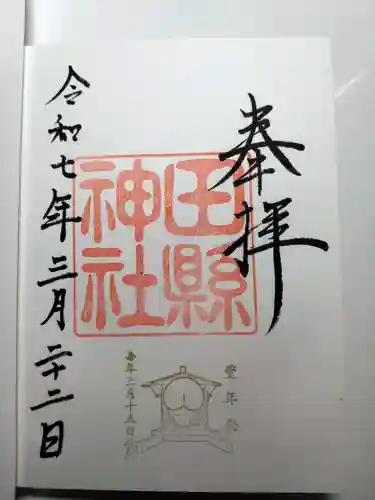 奉拝
田縣
神社
豊年祭
毎年三月十五日
令和七年三月二十二日